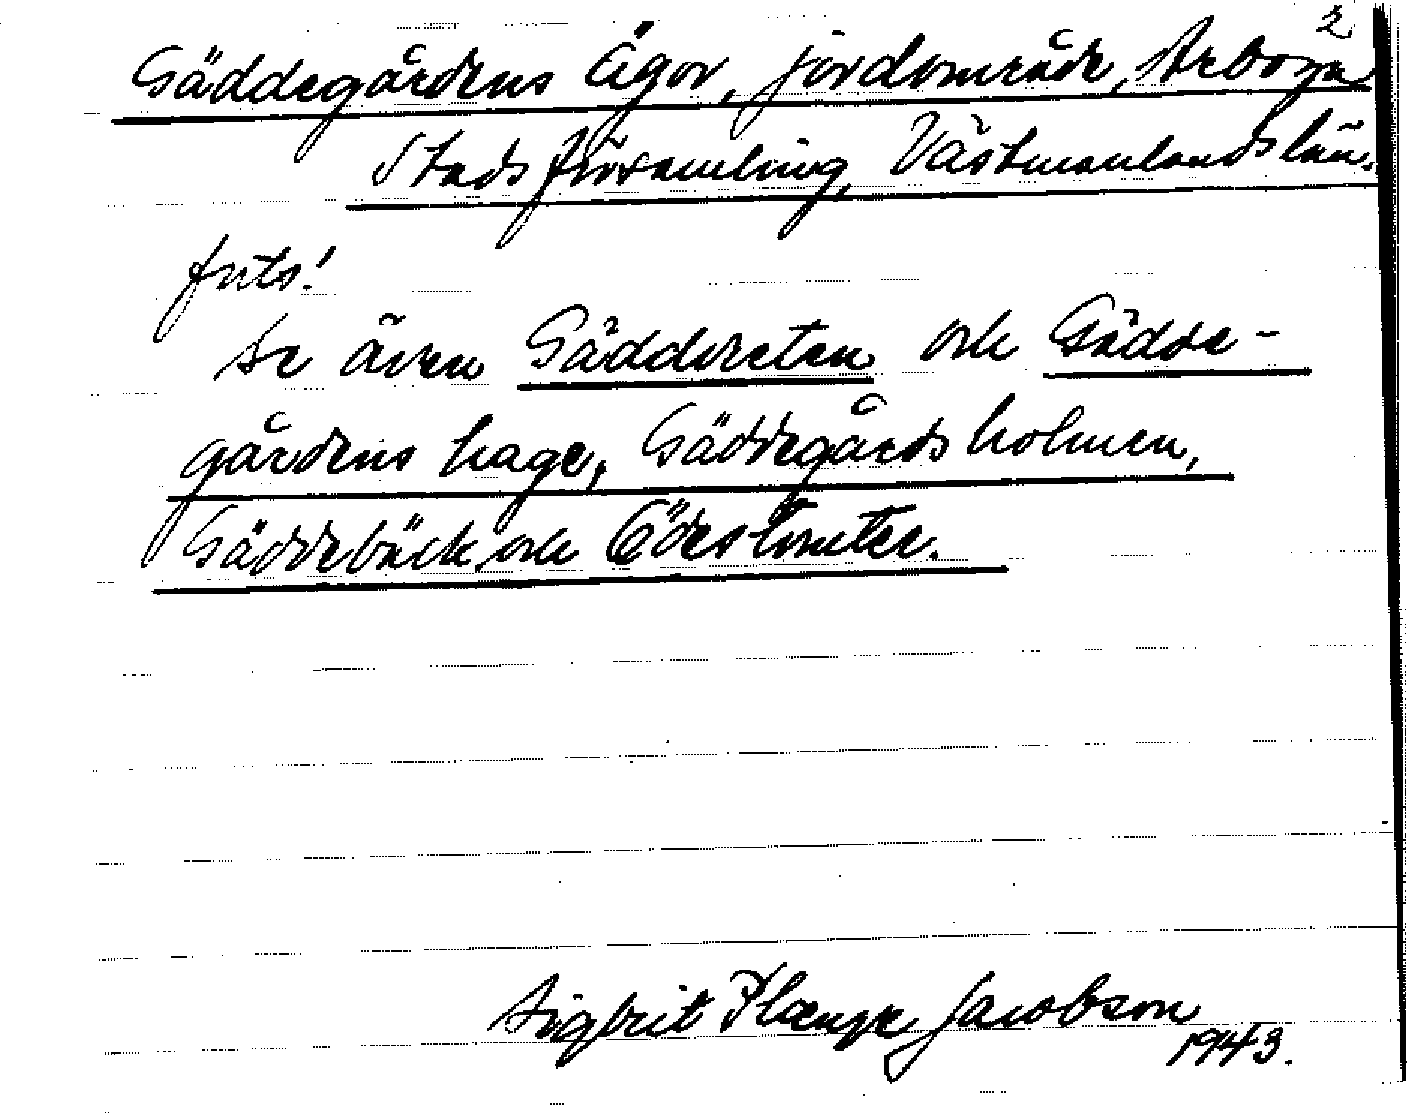 2
Gäddegårdens Ägor, jordområde, Arboga
Stadsförsamling, Västmanlands län.
forts!
Se även Gäddereten och Gädde-
gårdens hage, Gäddegårdsholmen,
Gäddebäck och Ödestomter.
Sigbrit Plænge Jacobson
1943.